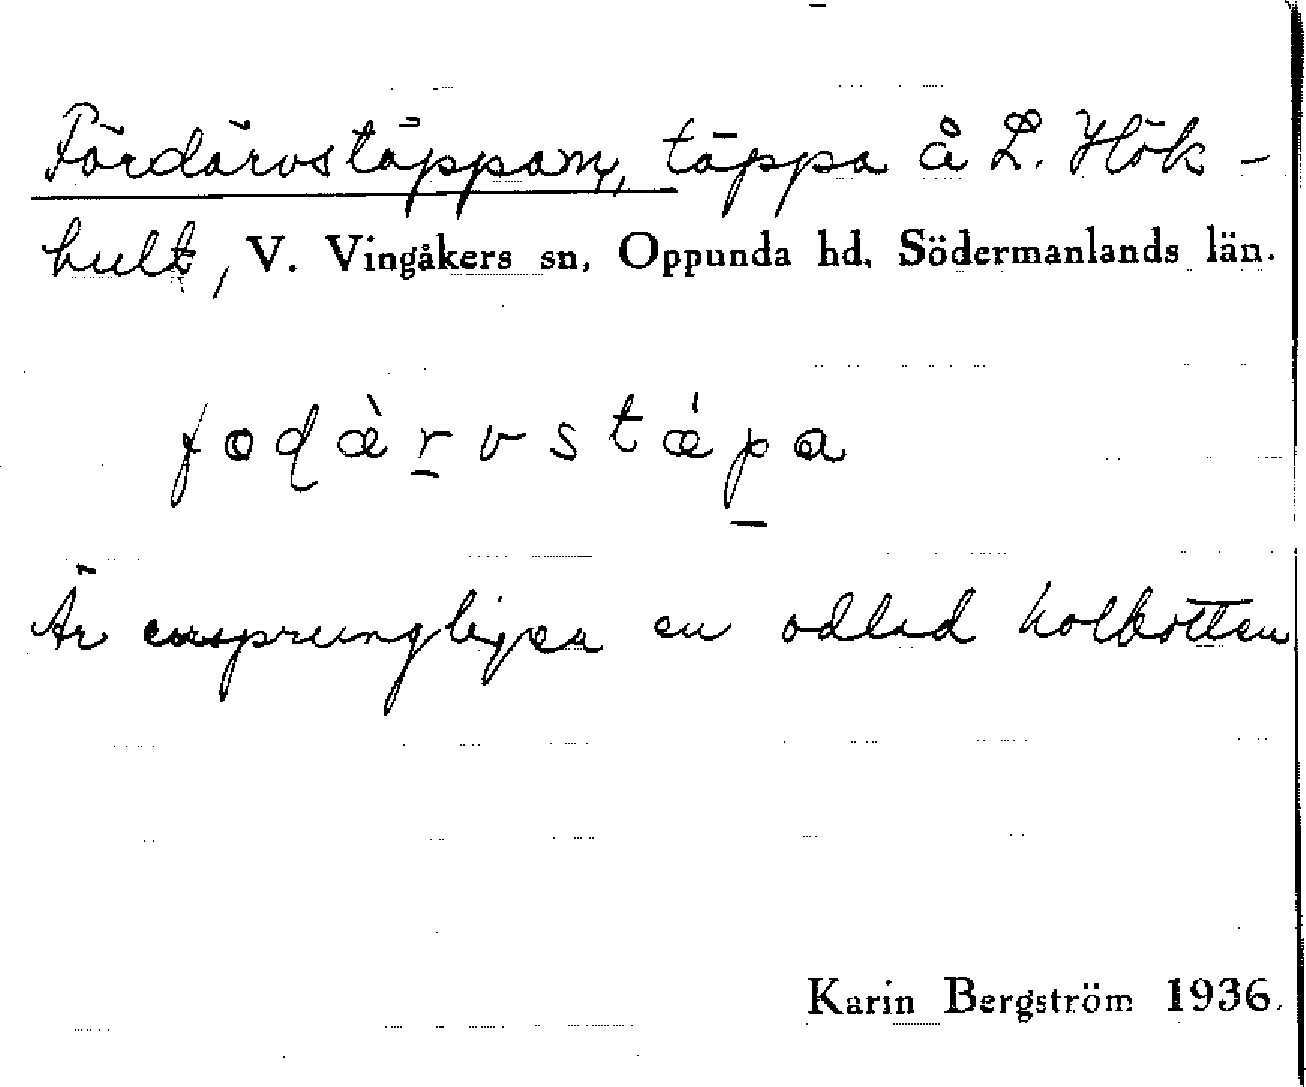 Fördärvstäppan, täppa å L. Hök-
hult, V. Vingåkers sn, Oppunda hd, Södermanlands län.
fodæ̀r̲vstǽp̲a
Är ursprungligen en odlad kolbotten
Karin Bergström 1936.